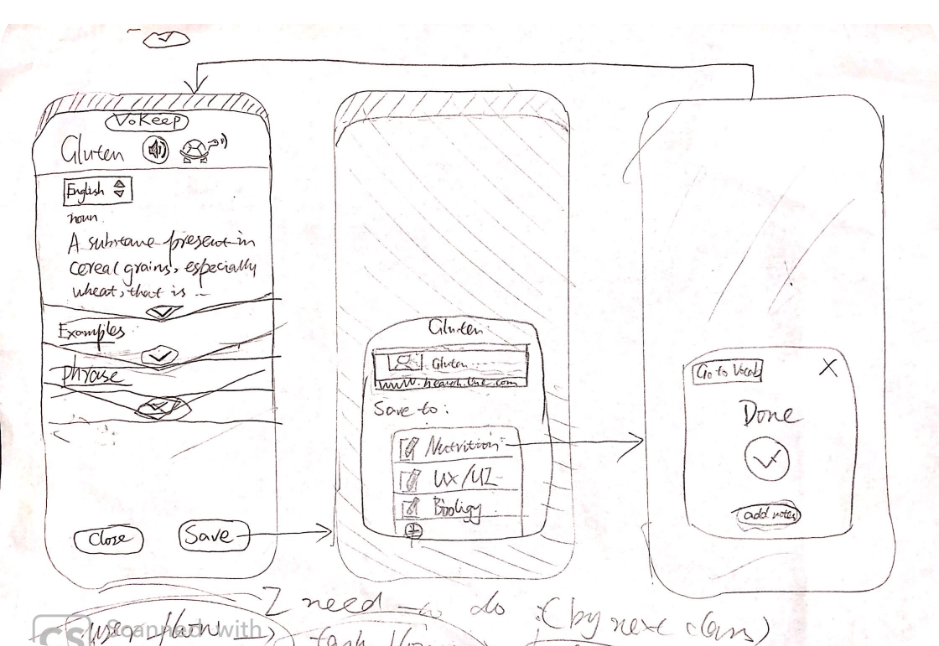 VoKeep
Gluten
English
noun
A substance present in
cereal grains, especially
wheat, that is ...
Examples
phrase
Close
Save
Gluten
Gluten
Save to:
Nutrition
UX/UI
Biology
Go to Vocab
X
Done
add notes
I need to do: (by next class)
user flow
task flow
CS Scanned with